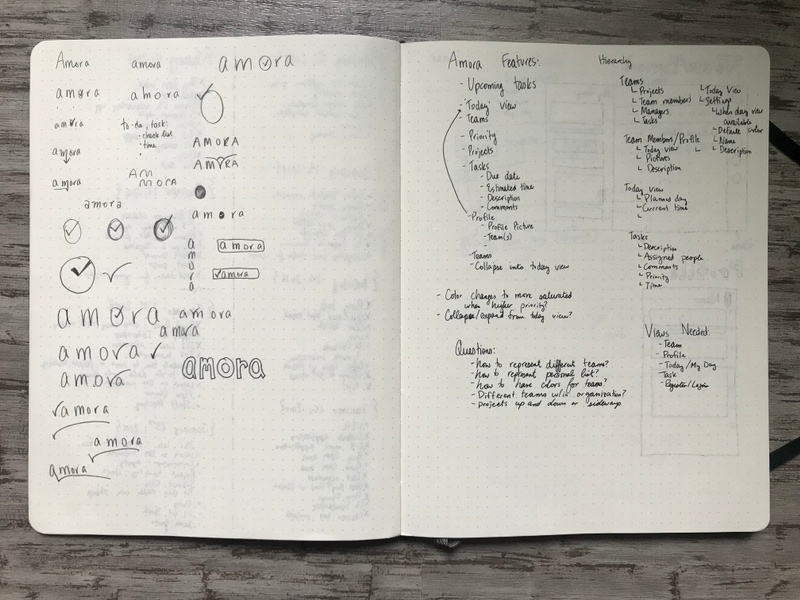 Amora
amora
amora
amora
amora
amora
to-do, task:
- check list
- time
amora
amora
AM
MORA
amora
AMORA
AMORA
amora
amora
amora
amora
amora
amora
amora
amora
amora
amora
amora
amora
amora
amora
Amora Features:
- Upcoming tasks
- "Today" view
- Teams
- Priority
- Projects
- Tasks
- Due date
- Estimated time
- Description
- Comments
- Profile
- Profile Picture
- Team(s)
-
- Teams
- Collapse into today view
- Color changes to more saturated
when higher priority?
- Collapse/expand from today view?
Questions:
- How to represent different teams?
- How to represent personal list?
- How to have colors for teams?
- Different teams w/in organization?
- projects up and down or sideways
Hierarchy
Teams
Projects
Team members
Managers
Tasks
Today View
Settings
When day view
available
Default color
Name
Description
Team Members/Profile
Today view
Pictures
Description
Today view
Planned day
Current time
Tasks
Description
Assigned people
Comments
Priority
Time
Views Needed:
- Team
- Profile
- Today/My Day
- Task
- Register/Login